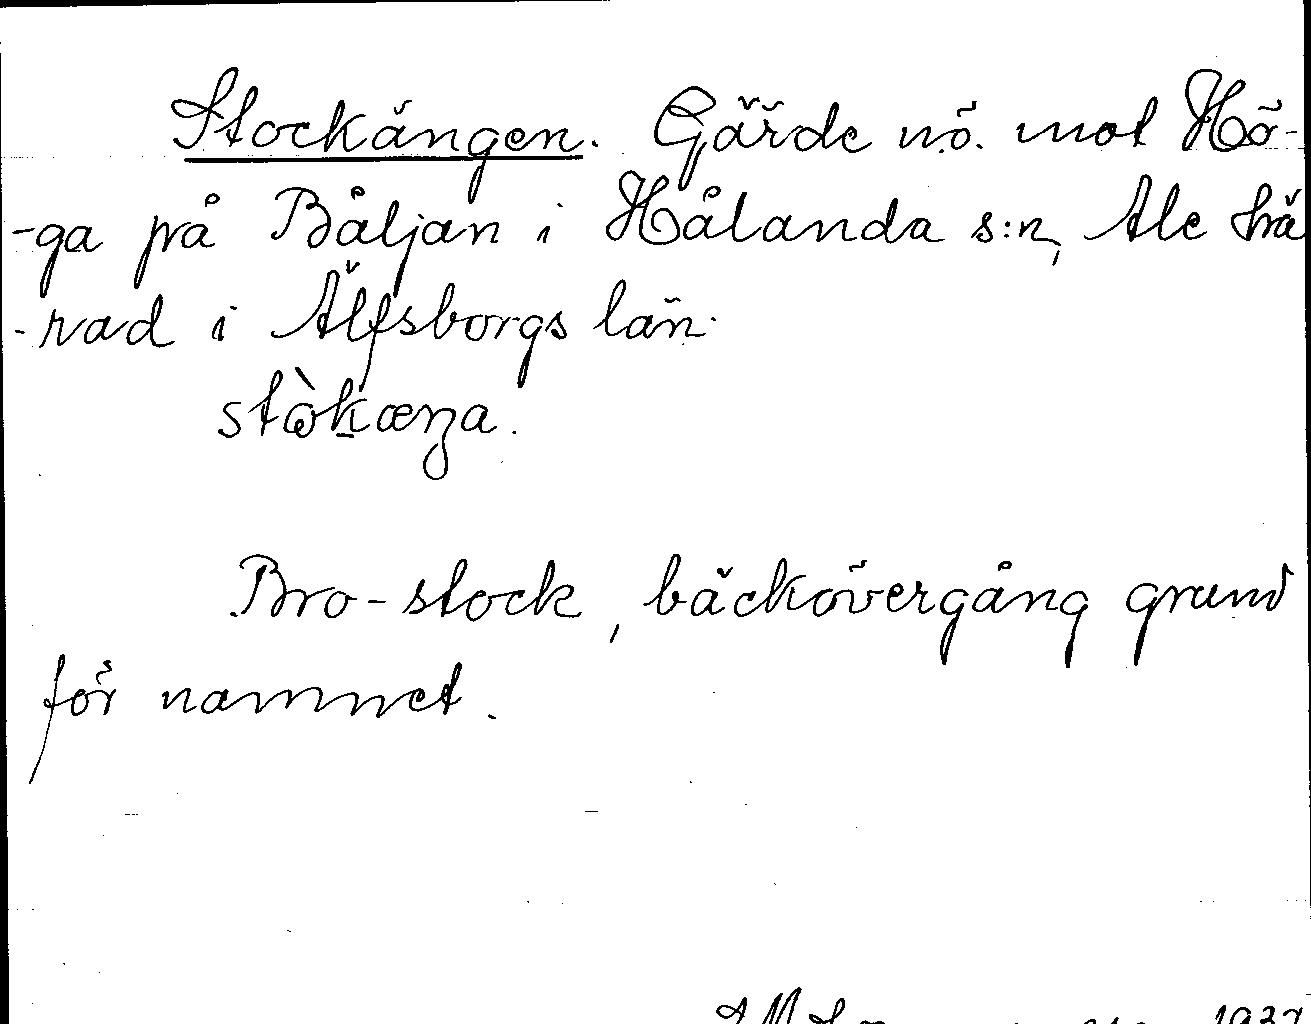 Stockängen. Gärde n.ö. mot Hö-
-ga på Båljan i Hålanda s:n, Ale hä
-rad i Älfsborgs län.
stòkæŋa.
Bro-stock, bäckövergång grund
för namnet.